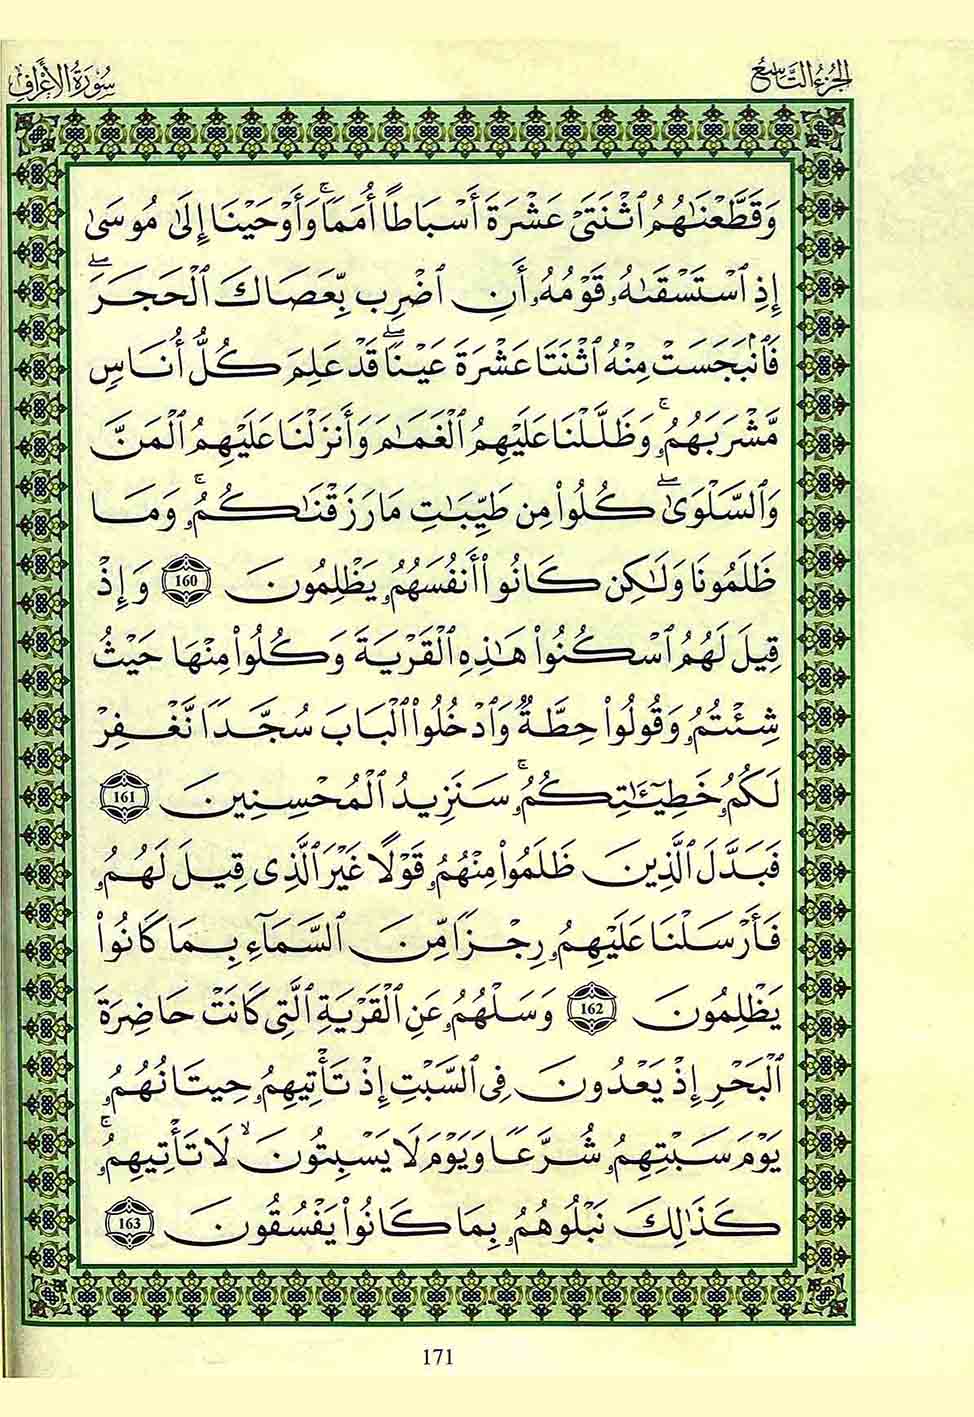 الجزء التاسع
سورة الأعراف
وَقَطَّعْنَٰهُمُ ٱثْنَتَىْ عَشْرَةَ أَسْبَاطًا أُمَمًاۚ وَأَوْحَيْنَا إِلَىٰ مُوسَىٰ
إِذِ ٱسْتَسْقَىٰهُ قَوْمُهُۥ أَنِ ٱضْرِب بِّعَصَاكَ ٱلْحَجَرَۖ
فَٱنۢبَجَسَتْ مِنْهُ ٱثْنَتَا عَشْرَةَ عَيْنًاۖ قَدْ عَلِمَ كُلُّ أُنَاسٍ
مَّشْرَبَهُمُۥۚ وَظَلَّلْنَا عَلَيْهِمُ ٱلْغَمَٰمَ وَأَنزَلْنَا عَلَيْهِمُ ٱلْمَنَّ
وَٱلسَّلْوَىٰۖ كُلُوا۟ مِن طَيِّبَٰتِ مَا رَزَقْنَٰكُمُۥۚ وَمَا
ظَلَمُونَا وَلَٰكِن كَانُوا۟ أَنفُسَهُمُۥ يَظْلِمُونَ 160 وَإِذْ
قِيلَ لَهُمُ ٱسْكُنُوا۟ هَٰذِهِ ٱلْقَرْيَةَ وَكُلُوا۟ مِنْهَا حَيْثُ
شِئْتُمُۥ وَقُولُوا۟ حِطَّةٌ وَٱدْخُلُوا۟ ٱلْبَابَ سُجَّدًا نَّغْفِرْ
لَكُمُۥ خَطِيٓـَٰٔتِكُمُۥۚ سَنَزِيدُ ٱلْمُحْسِنِينَ 161
فَبَدَّلَ ٱلَّذِينَ ظَلَمُوا۟ مِنْهُمُۥ قَوْلًا غَيْرَ ٱلَّذِى قِيلَ لَهُمُۥ
فَأَرْسَلْنَا عَلَيْهِمُۥ رِجْزًا مِّنَ ٱلسَّمَآءِ بِمَا كَانُوا۟
يَظْلِمُونَ 162 وَسَلْهُمُۥ عَنِ ٱلْقَرْيَةِ ٱلَّتِى كَانَتْ حَاضِرَةَ
ٱلْبَحْرِ إِذْ يَعْدُونَ فِى ٱلسَّبْتِ إِذْ تَأْتِيهِمُۥ حِيتَانُهُمُۥ
يَوْمَ سَبْتِهِمُۥ شُرَّعًا وَيَوْمَ لَا يَسْبِتُونَۙ لَا تَأْتِيهِمُۥۚ
كَذَٰلِكَ نَبْلُوهُمُۥ بِمَا كَانُوا۟ يَفْسُقُونَ 163
171